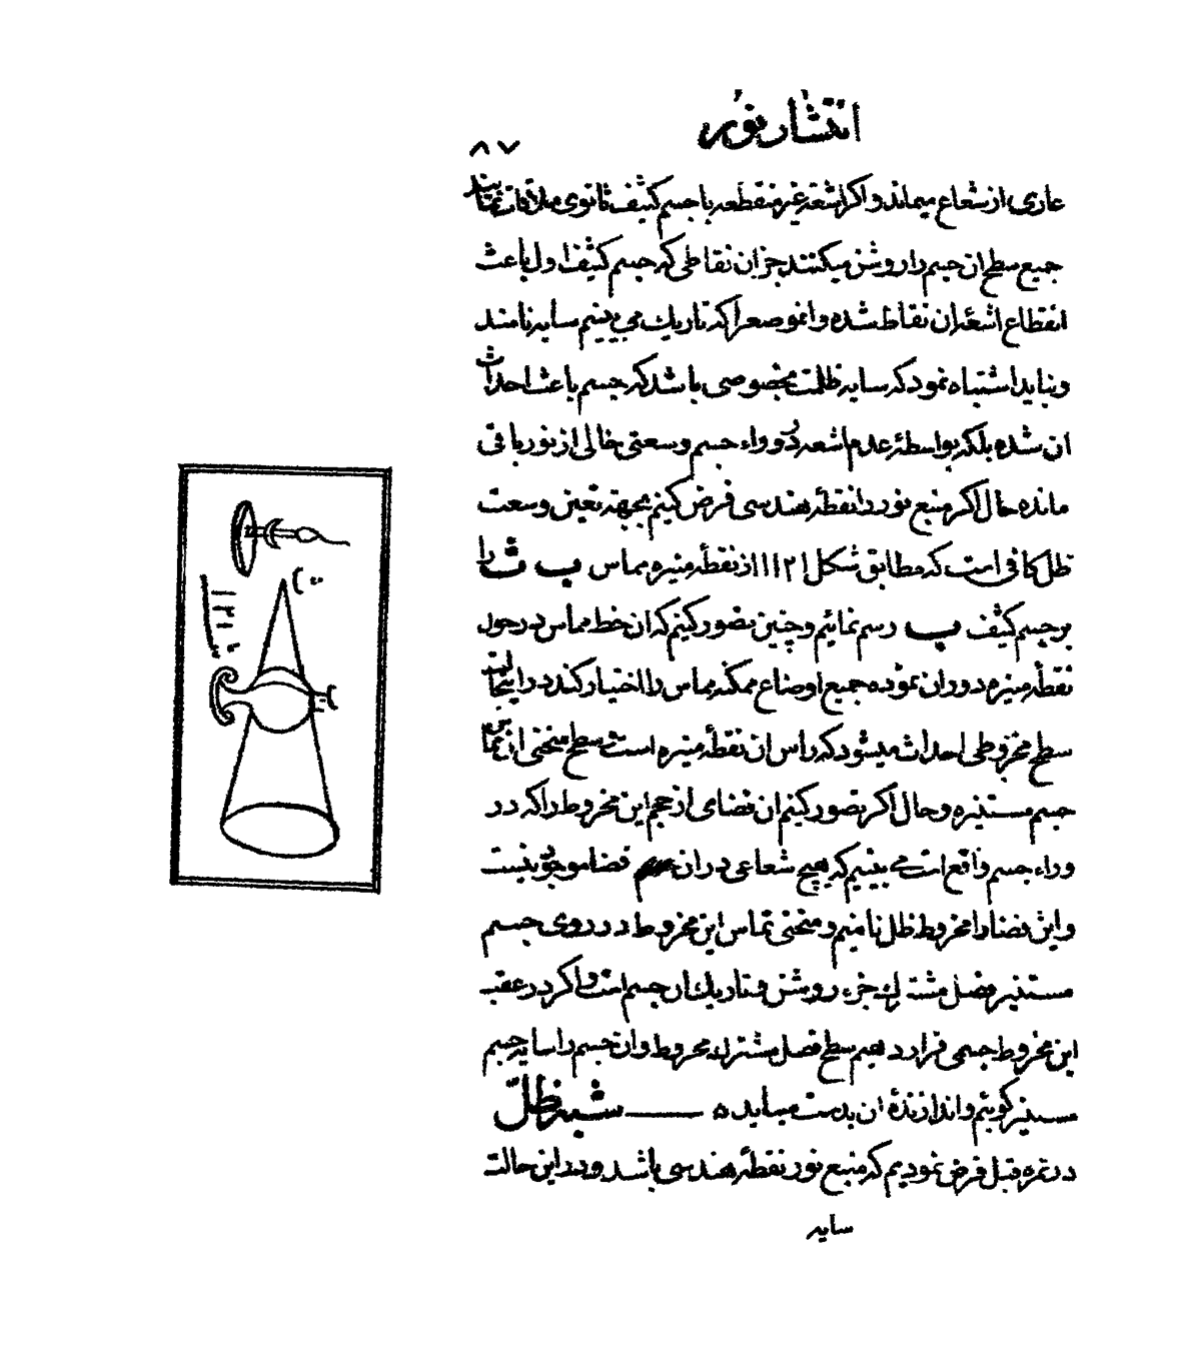 انتشار نور
۸۷
عاری از شعاع میماند و اکر اشعهٔ غیر منقطعه با جسم کثیف ثانوی ملاقات نمایند
جمیع سطح ان جسم را روشن میکنند جز ان نقاطی که جسم کثیف اول باعث
انقطاع اشعهٔ ان نقاط شده و انموضعرا که تاریک می بینیم سایه نامند
و نباید اشتباه نمود که سایه ظلمت مخصوصی باشد که جسم باعث احداث
ان شده بلکه بواسطهٔ عدم اشعه در وراء جسم وسعتی خالی از نور باقی
مانده حال اکر منبع نور را نقطهٔ هندسی فرض کنیم بجهة تعین وسعت
ظل کافی است که مطابق شکل ۱۲۱ از نقطهٔ منیره مماس ب ث را
بر جسم کثیف ب رسم نمائیم و چنین تصور کنیم که ان خط مماس در حول
نقطهٔ منیره دوران نموده جمیع اوضاع ممکنهٔ مماس را اختیار کند در اینحالت
سطح مخروطی احداث میشود که راس ان نقطهٔ منیره است و سطح منحنی ان مماس
جسم مستنیره و حال اکر تصور کنیم ان فضای از حجم این مخروط را که در
وراء جسم واقع است می بینیم که هیچ شعاعی در ان فضا موجود نیست
و این فضا را مخروط ظل نامیم و منحنی تماس این مخروط در روی جسم
مستنیر فصل مشترک جزء روشن و تاریک ان جسم است و اکر در عقب
این مخروط جسمی قرار دهیم سطح فصل مشترک مخروط و ان جسم را سایه جسم
مستنیر کوئیم و اندازهٔ ان بدست میاید ۵ ——— شبه ظلّ
در نمره قبل فرض نمودیم که منبع نور نقطهٔ هندسی باشد و در این حالت
سایه
ث
ب
۱۲۱